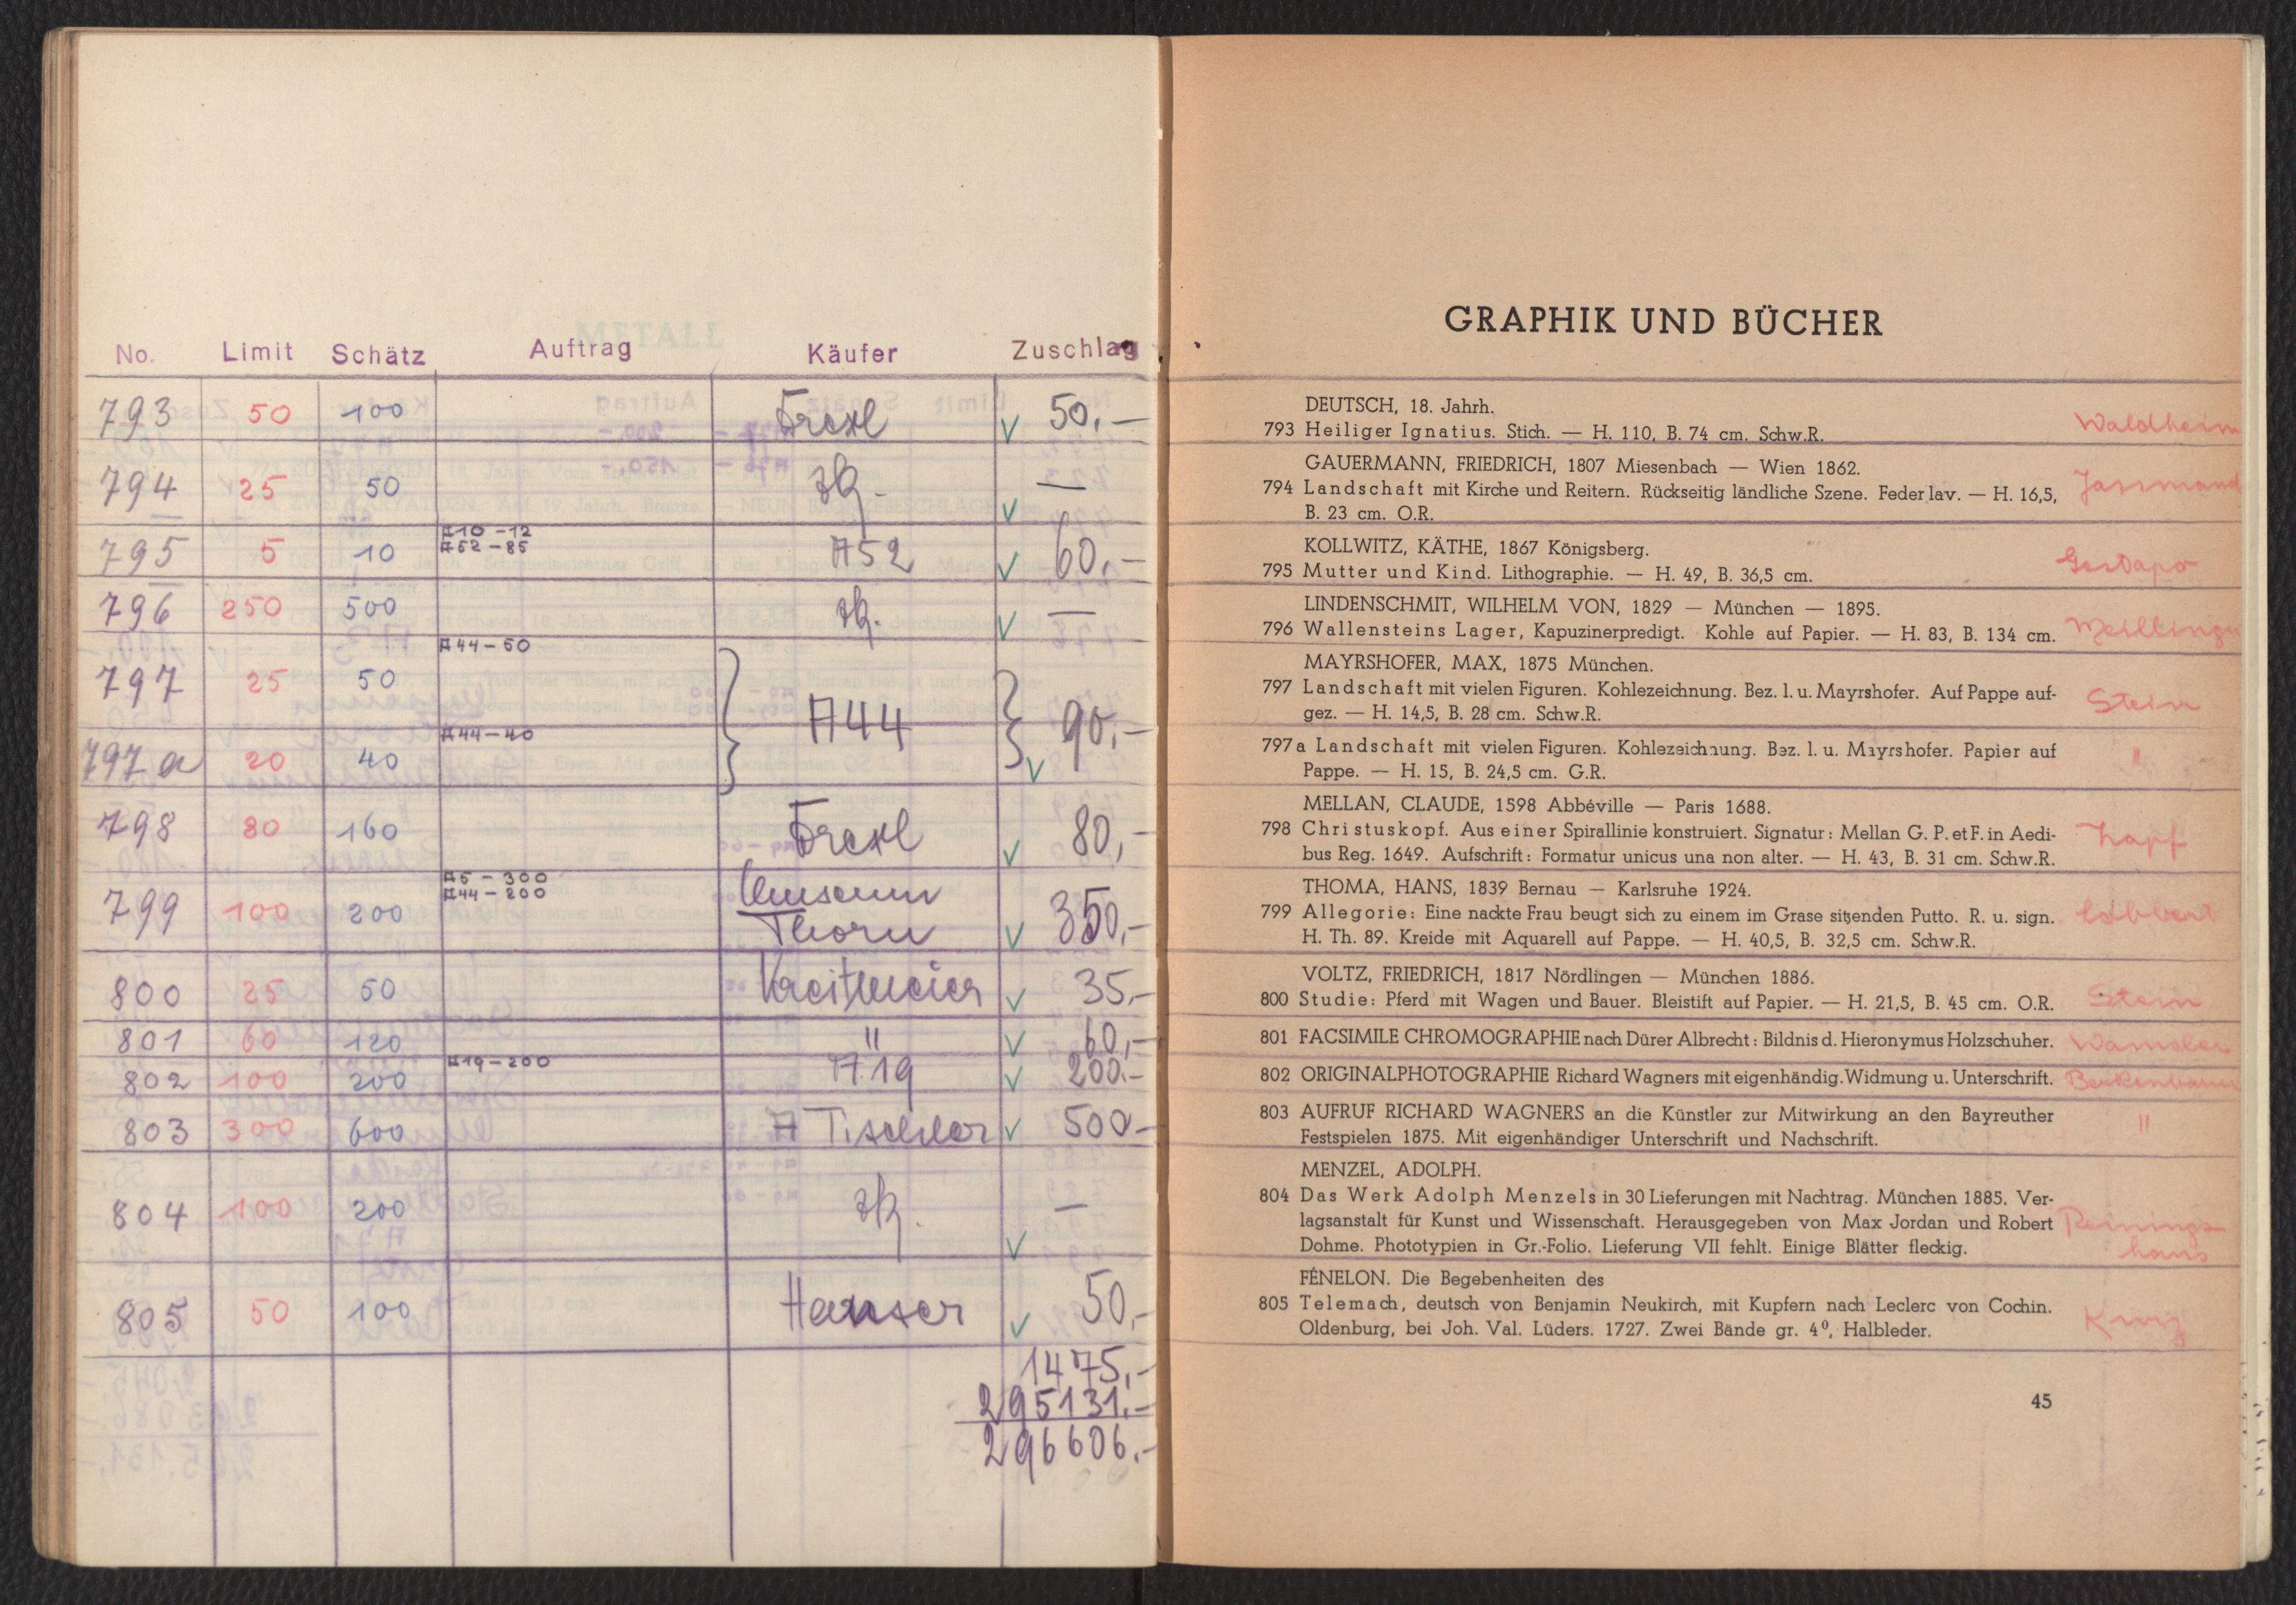 No. Limit Schätz Auftrag Käufer Zuschlag
793 50 100 50.-
794 25 50 zk. —
A10 - 12
A52 - 85
795 5 10 A52 60.-
796 250 500 zk. —
A44 - 50
797 25 50
A44 90.-
A44 - 40
797a 20 40
798 80 160 80,-
A5 - 300
A44 - 200
799 100 200 Museum
Thorn 350,-
800 25 50 Kreitmeier 35.-
801 60 120 " 60,-
A19 - 200
802 100 200 A19 200.-
803 300 600 A Tischler 500-
804 100 200 zk. —
805 50 100 Hauser 50,-
1475,-
295131.-
296606.-
GRAPHIK UND BÜCHER
DEUTSCH, 18. Jahrh.
793 Heiliger Ignatius. Stich. — H. 110, B. 74 cm. Schw.R. Waldheim
GAUERMANN, FRIEDRICH, 1807 Miesenbach — Wien 1862.
794 Landschaft mit Kirche und Reitern. Rückseitig ländliche Szene. Feder lav. — H. 16,5, Jasmand
B. 23 cm. O.R.
KOLLWITZ, KÄTHE, 1867 Königsberg.
795 Mutter und Kind. Lithographie. — H. 49, B. 36,5 cm. Gestapo
LINDENSCHMIT, WILHELM VON, 1829 — München — 1895.
796 Wallensteins Lager, Kapuzinerpredigt. Kohle auf Papier. — H. 83, B. 134 cm. Meillinger
MAYRSHOFER, MAX, 1875 München.
797 Landschaft mit vielen Figuren. Kohlezeichnung. Bez. l. u. Mayrshofer. Auf Pappe auf- Stein
gez. — H. 14,5, B. 28 cm. Schw.R.
797a Landschaft mit vielen Figuren. Kohlezeichnung. Bez. l. u. Mayrshofer. Papier auf "
Pappe. — H. 15, B. 24,5 cm. G.R.
MELLAN, CLAUDE, 1598 Abbéville — Paris 1688.
798 Christuskopf. Aus einer Spirallinie konstruiert. Signatur: Mellan G. P. et F. in Aedi- Zapf
bus Reg. 1649. Aufschrift: Formatur unicus una non alter. — H. 43, B. 31 cm. Schw.R.
THOMA, HANS, 1839 Bernau — Karlsruhe 1924.
799 Allegorie: Eine nackte Frau beugt sich zu einem im Grase sitzenden Putto. R. u. sign.
H. Th. 89. Kreide mit Aquarell auf Pappe. — H. 40,5, B. 32,5 cm. Schw.R.
VOLTZ, FRIEDRICH, 1817 Nördlingen — München 1886.
800 Studie: Pferd mit Wagen und Bauer. Bleistift auf Papier. — H. 21,5, B. 45 cm. O.R. Stein
801 FACSIMILE CHROMOGRAPHIE nach Dürer Albrecht: Bildnis d. Hieronymus Holzschuher. Wamsler
802 ORIGINALPHOTOGRAPHIE Richard Wagners mit eigenhändig. Widmung u. Unterschrift.
803 AUFRUF RICHARD WAGNERS an die Künstler zur Mitwirkung an den Bayreuther "
Festspielen 1875. Mit eigenhändiger Unterschrift und Nachschrift.
MENZEL, ADOLPH.
804 Das Werk Adolph Menzels in 30 Lieferungen mit Nachtrag. München 1885. Ver-
lagsanstalt für Kunst und Wissenschaft. Herausgegeben von Max Jordan und Robert Reinings-
Dohme. Phototypien in Gr.-Folio. Lieferung VII fehlt. Einige Blätter fleckig. haus
FÉNELON. Die Begebenheiten des
805 Telemach, deutsch von Benjamin Neukirch, mit Kupfern nach Leclerc von Cochin.
Oldenburg, bei Joh. Val. Lüders. 1727. Zwei Bände gr. 4⁰, Halbleder.
45